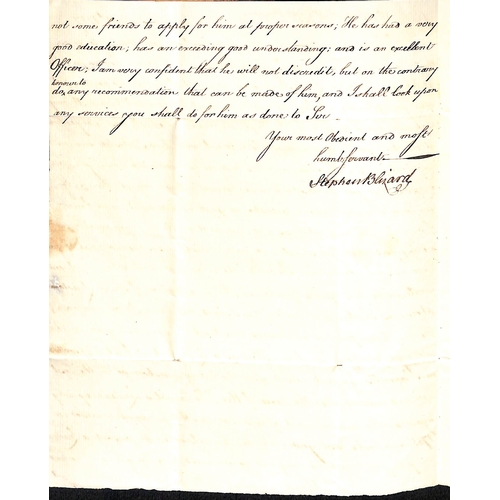 not some friends to apply for him at proper seasons; He has had a very
good education; has an exceeding good understanding; and is an excellent
Officer; I am very confident that he will not discredit, but on the contrary
honour to
do, any recommendation that can be made of him, and I shall look upon
any services you shall do for him as done to Sir
Your most Obedient and most
hum: Servant.
Stephen Blizard